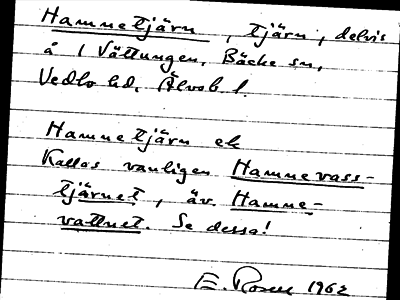 Hamnetjärn, tjärn, delvis
å 1 Vättungen, Bäcke sn,
Vedbo hd, Älvsb l.
Hamnetjärn ek
Kallas vanligen Hamnevass-
tjärnet, äv. Hamne-
vattnet. Se dessa!
E. Rosell 1962